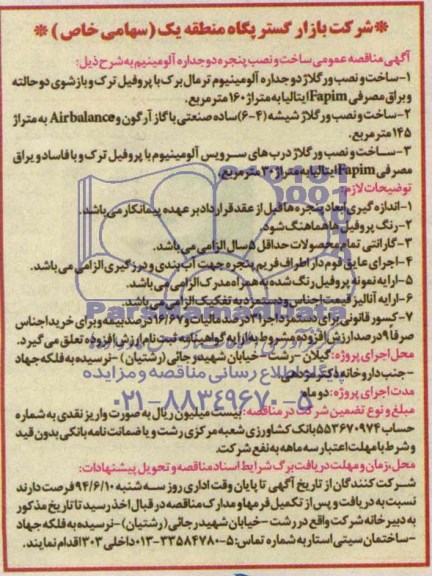 * شرکت بازار گستر پگاه منطقه یک (سهامی خاص) *
آگهی مناقصه عمومی ساخت و نصب پنجره دوجداره آلومینیم به شرح ذیل:
۱-ساخت و نصب ورگلاژ دوجداره آلومینیوم ترمال برک با پروفیل ترک و بازشوی دو حالته
و یراق مصرفی Fapim ایتالیا به متراژ ۱۶۰ متر مربع.
۲-ساخت و نصب ورگلاژ شیشه (۴-۶) ساده صنعتی با گاز آرگون و Airbalance به متراژ
۱۴۵ متر مربع.
۳-ساخت و نصب ورگلاژ درب های سرویس آلومینیوم با پروفیل ترک و با فاسادو یراق
مصرفی Fapim ایتالیا به متراژ ۳۰ متر مربع.
توضیحات لازم:
۱-اندازه گیری ابعاد پنجره ها قبل از عقد قرارداد بر عهده پیمانکار می باشد.
۲-رنگ پروفیل ها هماهنگ شود.
۳-گارانتی تمام محصولات حداقل ۵ سال الزامی می باشد.
۴-اجرای عایق فوم دار اطراف فریم پنجره جهت آب بندی و درزگیری الزامی می باشد.
۵-ارایه نمونه پروفیل رنگ شده به همراه مدرک الزامی می باشد.
۶-ارایه آنالیز قیمت اجناس و دستمزد به تفکیک الزامی می باشد.
۷-کسور قانونی برای دستمزد اجرا ۳ درصد مالیات و ۱۶/۶۷ درصد بیمه و برای خرید اجناس
صرفاً ۹ درصد ارزش افزوده و مشروط به ارایه گواهینامه ثبت نام ارزش افزوده تعلق می گیرد.
محل اجرای پروژه: گیلان - رشت - خیابان شهید رجائی (رشتیان) - نرسیده به فلکه جهاد
- جنب داروخانه دکتر
مدت اجرای پروژه: دو ماه
مبلغ و نوع تضمین شرکت در مناقصه: بیست میلیون ریال به صورت واریز نقدی به شماره
حساب ۵۵۳۶۷۰۹۷۴ بانک کشاورزی شعبه مرکزی رشت و یا ضمانت نامه بانکی بدون قید
و شرط با مهلت اعتبار سه ماهه به نفع شرکت.
محل، زمان و مهلت دریافت برگ شرایط اسناد مناقصه و تحویل پیشنهادات:
شرکت کنندگان از تاریخ آگهی تا پایان وقت اداری روز سه شنبه ۹۴/۶/۱۰ فرصت دارند
نسبت به دریافت و پس از تکمیل فرمها و مدارک مناقصه در قبال اخذ رسید تا تاریخ مذکور
به دبیرخانه شرکت واقع در رشت - خیابان شهید رجائی (رشتیان) - نرسیده به فلکه جهاد
- ساختمان سیتی استار به شماره تماس: ۵-۳۳۵۸۴۷۸۰-۰۱۳ داخلی ۳۰۳ اقدام نمایند.
ParsNamadData
پایگاه اطلاع رسانی مناقصه و مزایده
۰۲۱-۸۸۳۴۹۶۷۰-۵